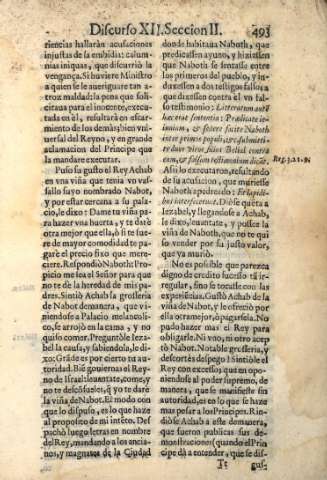 Discurso XII. Seccion II. 493
riencias hallarân acusaciones
injustas de la embidia: calum-
nias iniquas, que discurriò la
vengança. Si huviere Ministro
a quien se le averiguare tan a-
troz maldad: la pena que soli-
citava para el inocente, execu-
tada en èl, resultarà en escar-
miento de los demàs; bien vni-
versal del Reyno, y en grande
aclamacion del Principe que
la mandare executar.
Puso su gusto el Rey Achab
en vna viña que tenia vn vas-
sallo suyo nombrado Nabot,
y por estar cercana a su pala-
cio, le dixo: Dame tu viña pa-
ra hazer vna huerta, y te darè
otra mejor que ella, ò si te fue-
re de mayor comodidad te pa-
garè el precio fixo que mere-
ciere. Respondiò Naboth: Pro-
picio me sea el Señor para que
no te dè la heredad de mis pa-
dres. Sintiò Achab la grosseria
de Nabot de manera, que vi-
niendose a Palacio melancoli-
co, se arrojò en la cama, y no
quiso comer. Preguntòle Ieza-
bel la causa, y sabiendola, le di-
xo: Grãde es por cierto tu au-
toridad. Biẽ governas el Rey-
no de Israel: levantate, come, y
no te desconsueles, q̃ yo te darè
la viña de Nabot. El modo con
que lo dispuso, es lo que haze
al proposito de mi intẽto. Des-
pachò luego letras en nombre
del Rey, mandando a los ancia-
nos, y magnates de la Ciudad
donde habitava Naboth, que
predicassen ayuno, y hiziessen
que Naboth se sentasse entre
los primeros del pueblo, y in-
duxessen a dos testigos falsos a
que dixessen contra èl vn fal-
so testimonio: Litterarum autẽ
hac erat sententia: Prædicate ie-
iunium, & sedere facite Naboth
inter primos populi, & submitti-
te duos viros filios Belial contra
eum, & falsum testimonium dicãt. Reg. 3. 21. 9.
Assi lo executaron, resultando
de su acusacion, que muriesse
Naboth apedreado: Et lapidi-
bus interfecerunt. Diòse quẽta a
Iezabel, y llegandose a Achab,
le dixo: levantate, y possee la
viña de Naboth, que no te qui-
so vender por su justo valor,
que ya muriò.
No es posible que parezca
digno de credito sucesso tã ir-
regular, sino se tocasse con las
experiẽcias. Gustò Achab de la
viña de Nabot, y le ofreciò por
ella otra mejor, ò pagarsela. No
pudo hazer mas el Rey para
obligarle. Ni vno, ni otro acep-
tò Nabot. Notable grosseria, y
descortès despego! Sintiòle el
Rey con excessos, que en opo-
niendose al poder supremo, de
manera, que se manifieste sin
autoridad, es en lo que se haze
mas pesar a los Principes. Rin-
diòse Achab a este demanera,
que fueron publicas sus de-
monstraciones (quando el Prin-
cipe dà a entender, que se dis-
gus-